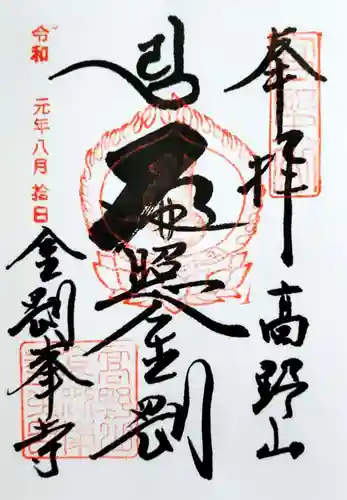 奉拝 高野山
遍照金剛
令和 元年八月 拾日
金剛峯寺